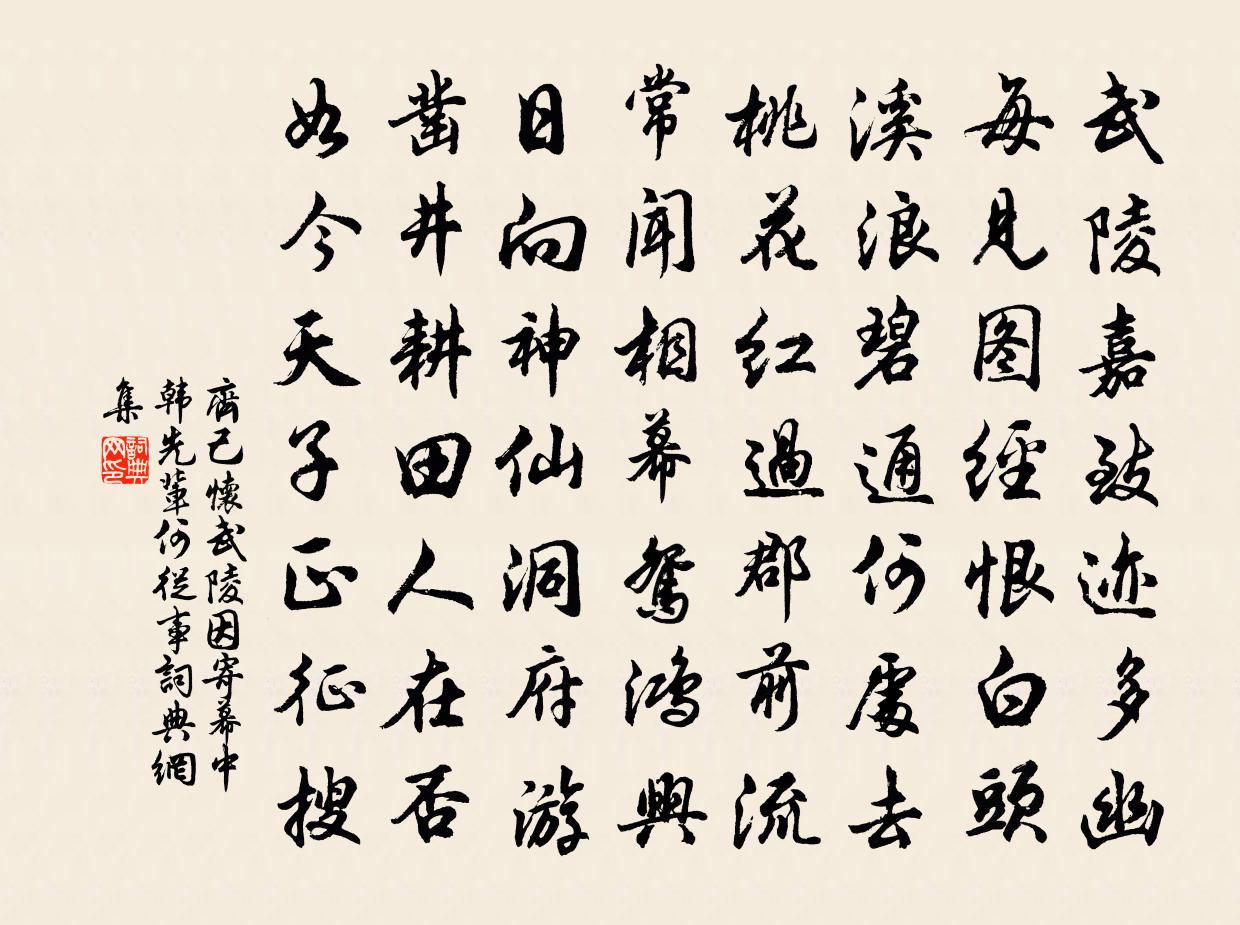 武陵嘉致迹多幽
每見图經恨白頭
溪浪碧通何處去
桃花紅過郡前流
常聞相幕鴛鴻興
日向神仙洞府游
鑿井耕田人在否
如今天子正征搜
齊己懷武陵因寄幕中
韩先輩何從事詞典網
集
詞典
网印